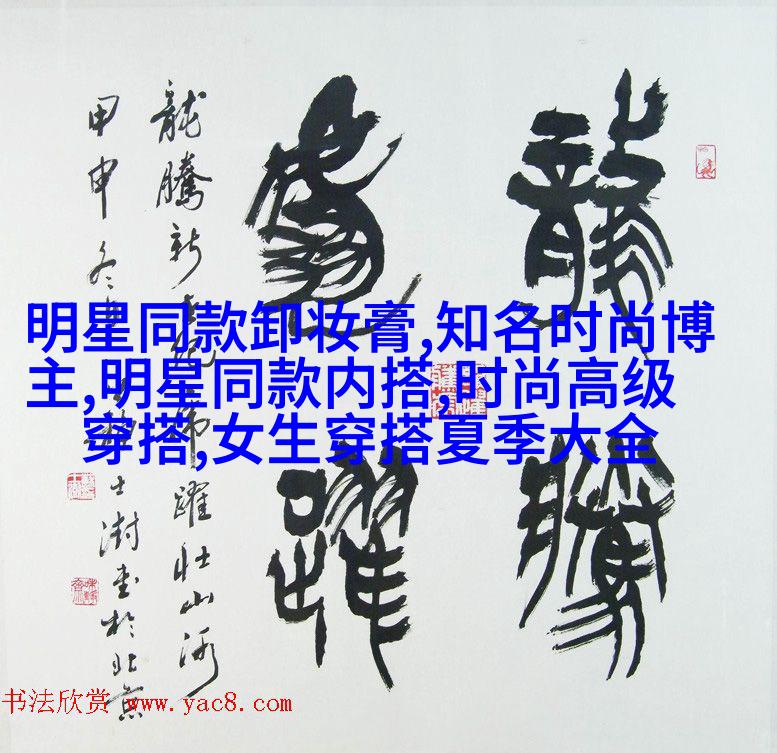 龍騰
虎躍
龍騰新世紀虎躍壯山河
甲申冬 士澍書於北京
明星同款卸妆膏,知名时尚博
主,明星同款内搭,时尚高级
穿搭,女生穿搭夏季大全
书法欣赏 www.yac8.com